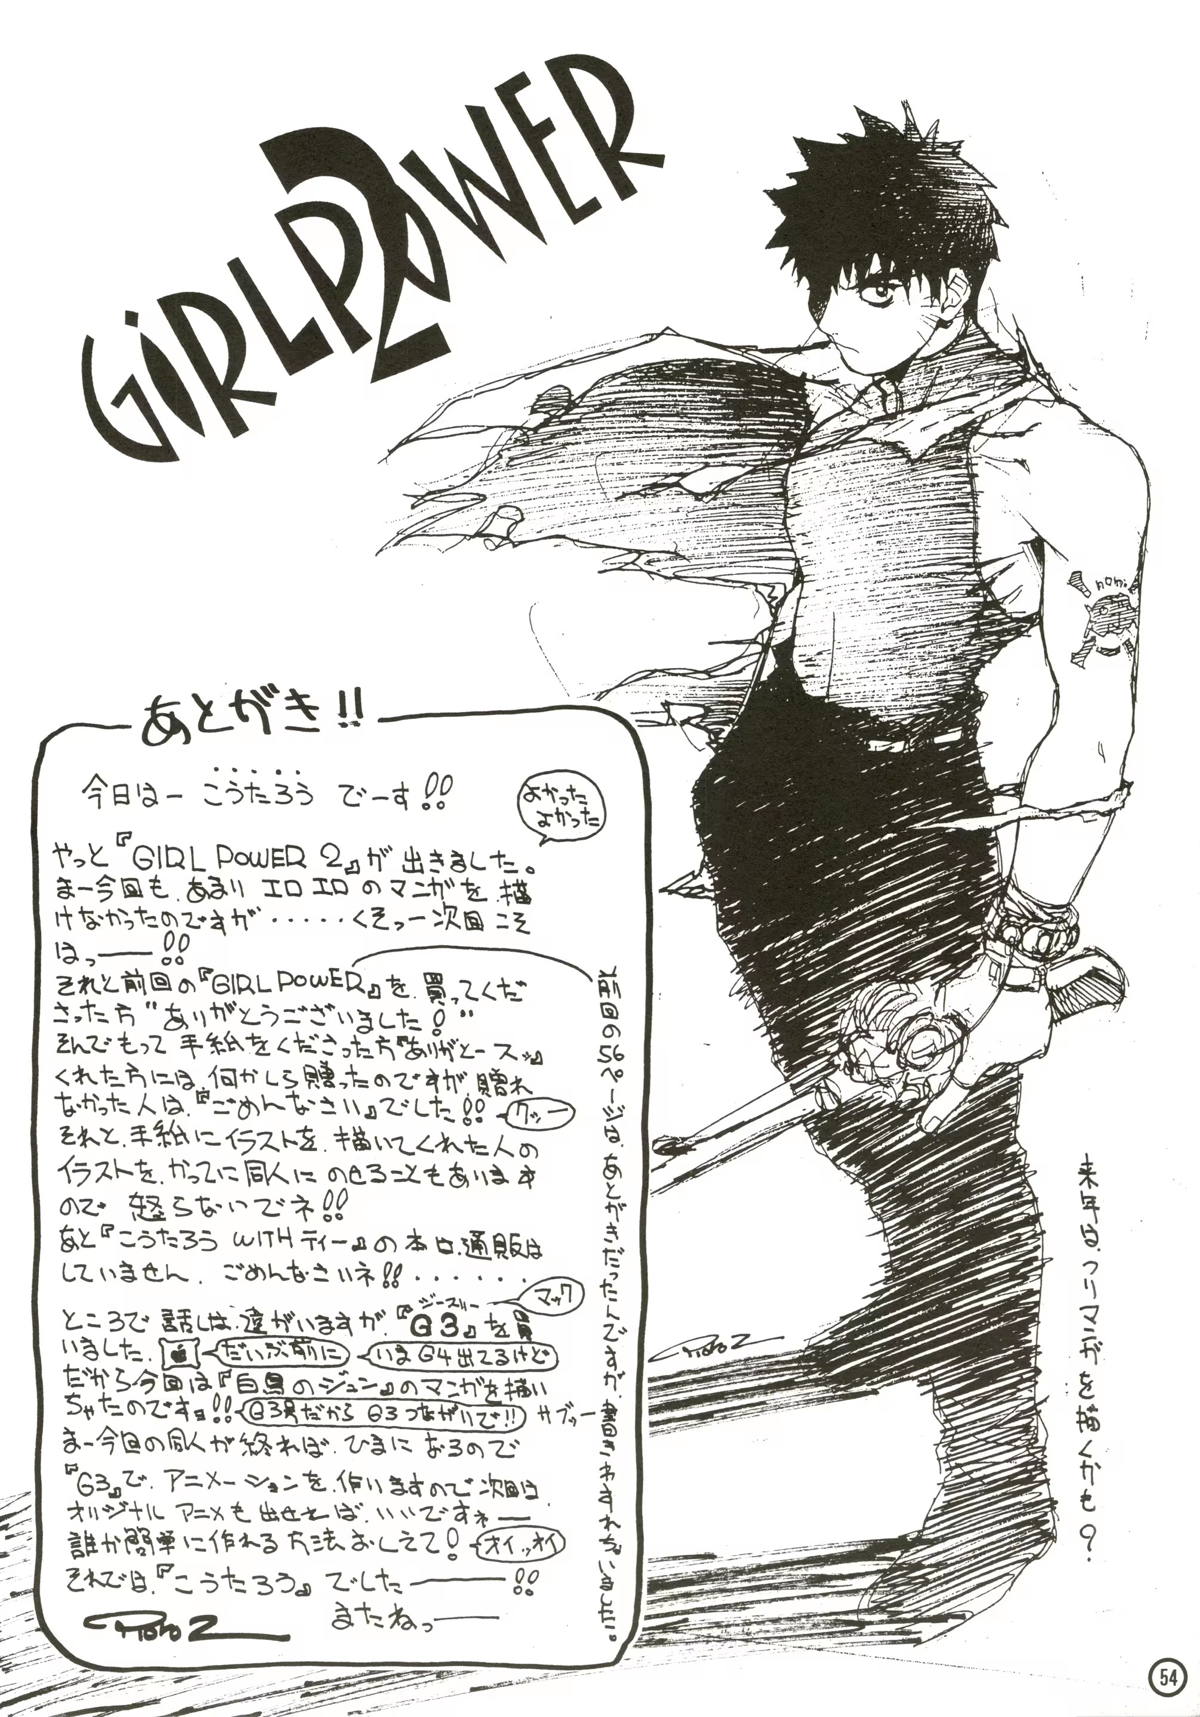 GiRLPOWER
2
あとがき!!
今日はー こうたろう でーす!!
よかった
よかった
やっと『GIRL POWER 2』が出きました。
まー今回も、あまり エロエロ のマンガを、描
けなかったのですが・・・・・くそっー次回こそ
はっ――!!
それと前回の『GIRL POWER』を、買ってくだ
さった方"ありがとうございました!"
そんでもって 手紙をくださった方『ありがとースッ』
くれた方には、何かしら贈ったのですが、贈れ
なかった人は、『ごめんなさい』でした!!
クッー
それと、手紙にイラストを、描いてくれた人の
イラストを、かってに同人に のせることもあります
ので 怒らないでネ!!
あと『こうたろう WITH ティー』の本は、通販は
していません、ごめんなさいネ!!・・・・・・
ところで 話しは、違がいますが、『G3』を買
ジースリー
マック
いました、
だいぶ前に
いまG4出てるけど
だから今回は『白鳥のジュン』のマンガを描い
ちゃたのですョ!!
G3号だから G3つながいで!!
サブッー
まー今回の同人が終れば、ひまになるので
『G3』で、アニメーションを、作いますので次回は、
オリジナル アニメも出せれば、いいですネー
誰か簡単に作れる方法おしえて!
オイッオイ
それでは、『こうたろう』でした――!!
またねっ――
前回の56ページは、あとがきだったんですが、書きわすれちゃいました!!。
来年は、フリマンガを描くかも?
nomi
54